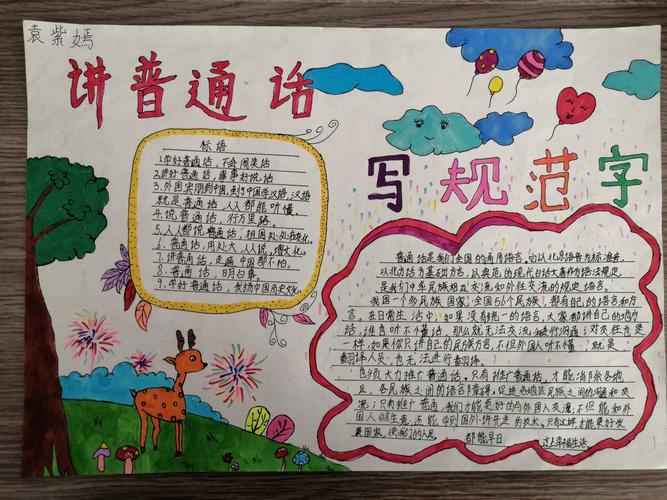 袁紫嫣
讲普通话
写规范字
标语
1.学好普通话,不会闹笑话
2.讲好普通话,事事好说话
3.外国宾朋到中国,来到中国学汉语,汉语
就是普通话,人人都能听懂。
4.说普通话,行万里路。
5.人人都说普通话,祖国处处
6.普通话,用处大,人人说,
7.讲普通话,走遍中国都不怕。
8.普通话,明古事。
9.学好普通话,发扬中国历史文化。
普通话是我们全国的通用语言,可以北京语音为标准音,
以北方话为基础方言,以典范的现代白话文著作为语法规定,
是我们中华民族相互交流和外往交流的规定语言。
我国一个多民族国家,全国56个民族,都有自己的语言和方
言,在日常生活中,如果没有统一的语言,大家都讲自己的地方
话,谁也听不懂话,那么就无法交流进行沟通;对交往也是
一样,如果你只讲自己的民族方言,不但外国人听不懂,就是
翻译人员,也无法进行翻译。
也须大力推广普通话。只有推广普通话,才能消除各地
区,各民族之间的语言障碍,促进各地区民族之间的沟通和交
流;只有推广普通,我们才能更好的与外国人交流,不但能和外国
人做生意,还能学到国外先进的技术。只有这样才能更好发
展国家,使我们的人民 都能早日 过上幸福生活